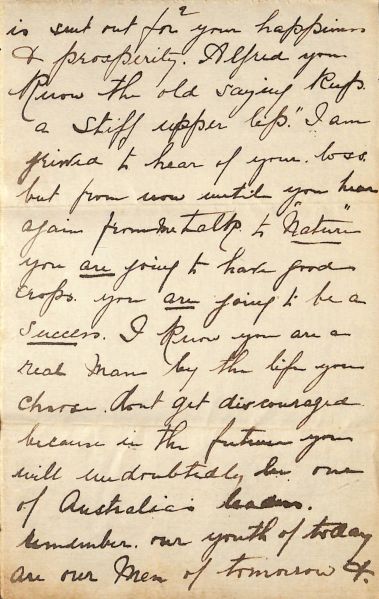 2
is sent out for your happiness
& prosperity. Alfred you
know the old saying Keep
a stiff upper lip." I am
grieved to hear of your loss
but from now until you hear
again from me talk to "Nature"
you are going to have good
crops. you are going to be a
success. I know you are a
real Man by the life you
choose. dont get discouraged
because in the future you
will undoubtedly be one
of Australia's leaders.
remember. our youth of today
are our Men of tomorrow &.